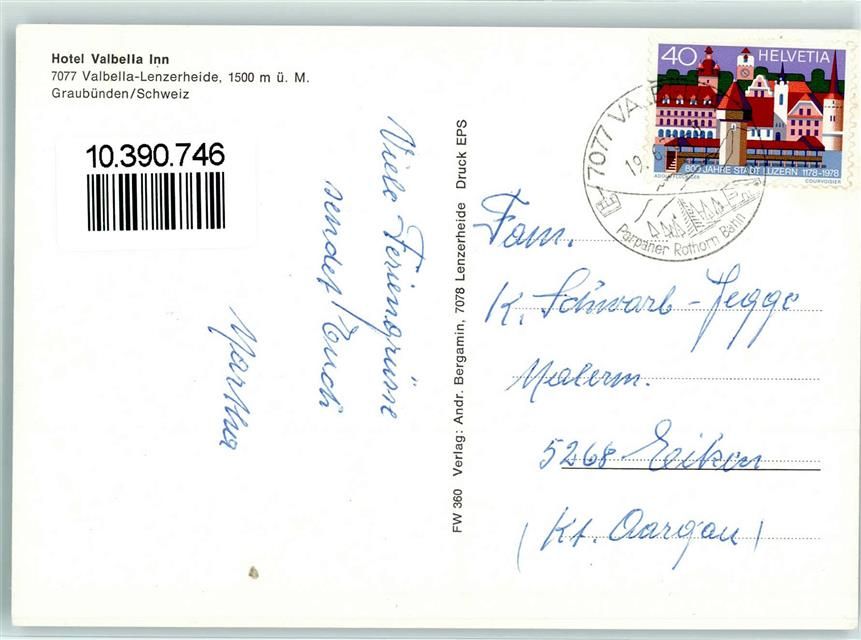 Hotel Valbella Inn
7077 Valbella-Lenzerheide, 1500 m ü. M.
Graubünden/Schweiz
10.390.746
Viele Feriengrüsse
sendet Euch
Martha
FW 360 Verlag: Andr. Bergamin, 7078 Lenzerheide Druck EPS
40 HELVETIA
800 JAHRE STADT LUZERN 1178-1978
ADOLF FLÜCKIGER COURVOISIER
7077
19.
Parpaner Rothorn Bahn
Fam.
K. Schwarb-Jegge
Malerm.
5268 Eiken
(Kt. Aargau)